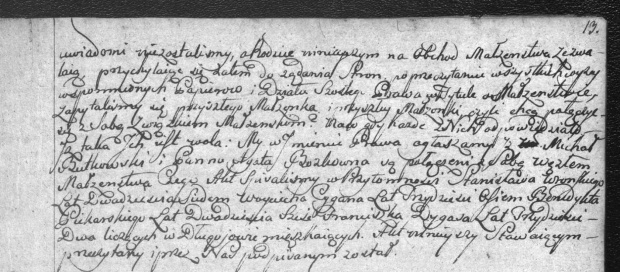 13.
uwiadomi niezostalismy, a Rodzice ninieyszym na Obchod Małzenstwa zezwa-
laią, przychylaiąc się zatem do żądania Stron, po przeczytaniu wszystkich wyzey
wspomnionych Papierow i Działu Szostego Prawa w Tytule o Małzenstwie,
zapytalismy się przyszłego Małzonka i przyszłey Małzonki, czyli chcą połączyć
się z Sobą Związkiem Małzenskiem? Na co gdy każde z Nich odpowiedziało
iż taka Ich iest wola: My w Imieniu Prawa ogłaszamy iż Michał
Rutkowski i Panna Agata są połączeni z Sobą węzłem
Małzenstwa. Czego Akt Spisalismy w Przytomnosci Stanisława Wronskiego
Lat Dwadziescia Siedem Woyciecha Cygana Lat Trzydziesci Osiem Benedykta
Piekarskiego Lat Dwadziescia Szesc Franciszka Dygasa Lat Trzydziesci-
Dwa liczących w mieszkaiących. Akt ninieyszy Stawaiącym-
przeczytany i przez Nas podpisanym został.